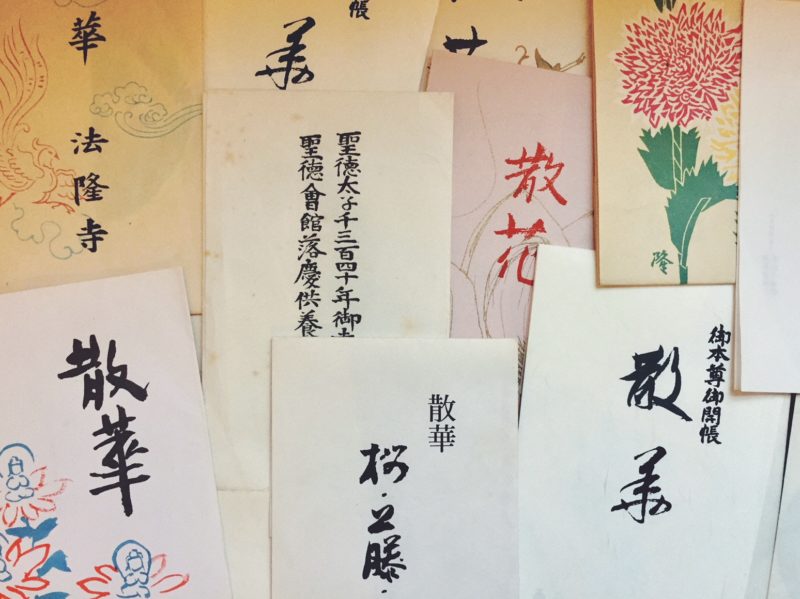 華 法隆寺
帳
華
聖徳太子千三百四十年御
聖徳會館落慶供養
散花
隆
散華
散華
桜・立藤・
御本尊御開帳
散華